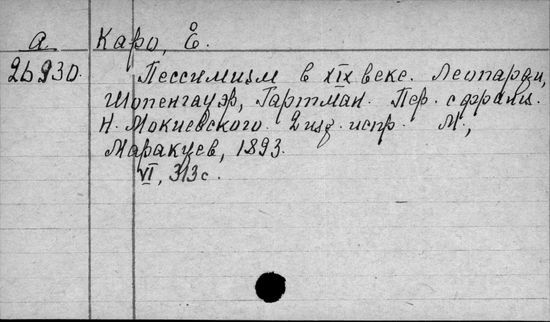 А Каро, Е̊.
26930. Пессимизм в XIX веке. Леопарди,
Шопенгауэр, Гартман. Пер. с франц.
Н. Мокиевского. 2 изд. испр. М.,
Маракуев, 1893.
VI, 313 с.